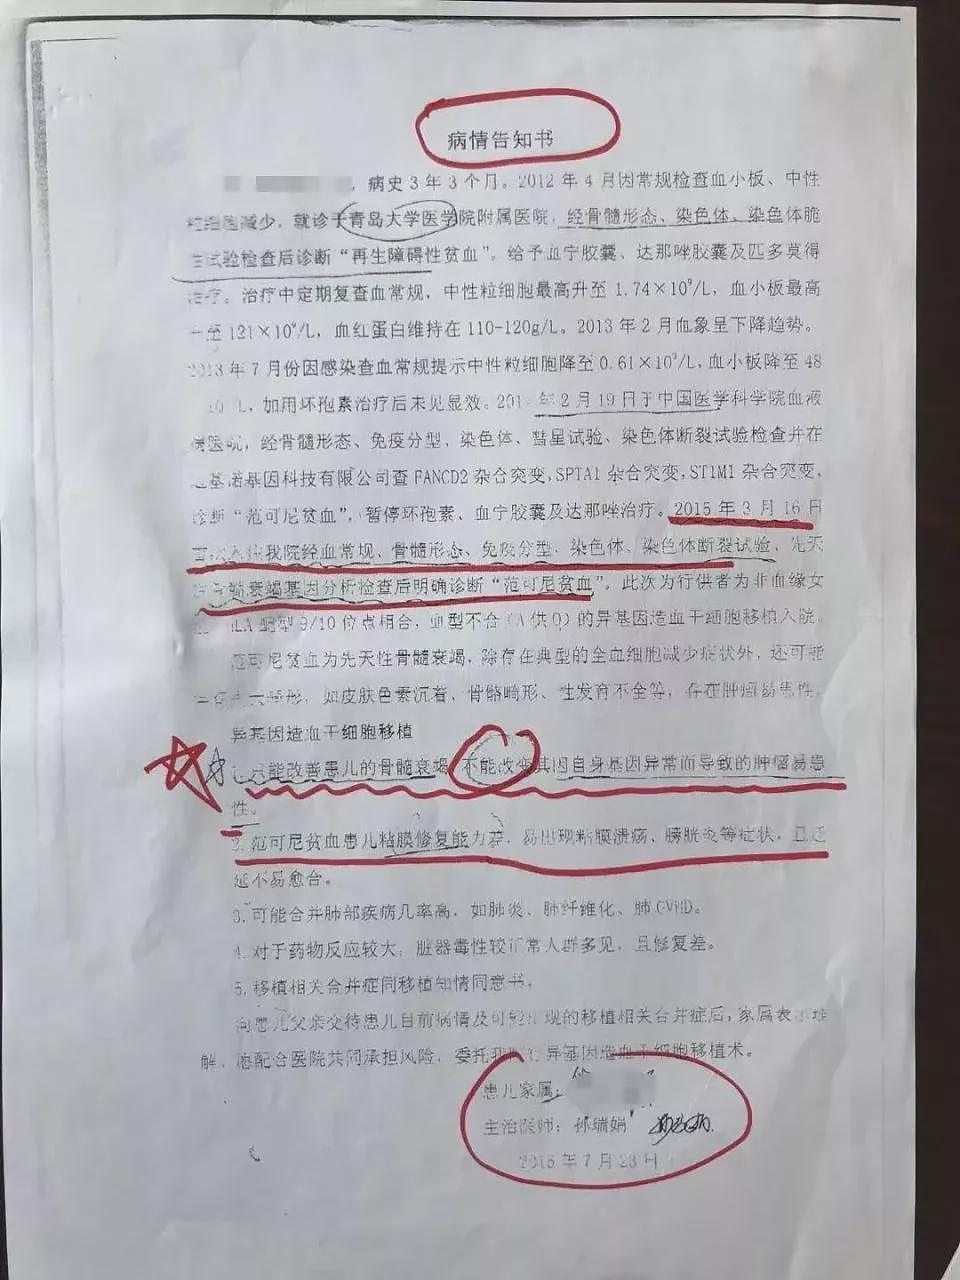 病情告知书
，病史3年3个月。2012年4月因常规检查血小板、中性
粒细胞减少，就诊于青岛大学医学院附属医院，经骨髓形态、染色体、染色体脆
性试验检查后诊断“再生障碍性贫血”。给予血宁胶囊、达那唑胶囊及匹多莫得
治疗。治疗中定期复查血常规，中性粒细胞最高升至1.74×10⁹/L，血小板最高
至121×10⁹/L，血红蛋白维持在110-120g/L。2013年2月血象呈下降趋势。
2013年7月份因感染查血常规提示中性粒细胞降至0.61×10⁹/L，血小板降至48
10 /L，加用环孢素治疗后未见显效。201 年2月19日于中国医学科学院血液
病医院，经骨髓形态、免疫分型、染色体、彗星试验、染色体断裂试验检查并在
基诺基因科技有限公司查FANCD2杂合突变，SPTA1杂合突变，STIM1杂合突变，
诊断“范可尼贫血”，暂停环孢素、血宁胶囊及达那唑治疗。2015年3月16日
我院经血常规、骨髓形态、免疫分型、染色体、染色体断裂试验、先天
衰竭基因分析检查后明确诊断“范可尼贫血”。此次为行供者为非血缘女
HLA配型9/10位点相合，血型不合（A供O）的异基因造血干细胞移植入院。
范可尼贫血为先天性骨髓衰竭，除存在典型的全血细胞减少症状外，还可能
畸形，如皮肤色素沉着、骨骼畸形、性发育不全等，存在肿瘤易患性。
异基因造血干细胞移植
1.只能改善患儿的骨髓衰竭，不能改变其因自身基因异常而导致的肿瘤易患
性。
2.范可尼贫血患儿粘膜修复能力弱，易出现粘膜溃疡、膀胱炎等症状，且迁
延不易愈合。
3.可能合并肺部疾病几率高，如肺炎、肺纤维化、肺GVHD。
4.对于药物反应较大，脏器毒性较正常人群多见，且修复差。
5.移植相关合并症同移植知情同意书。
向患儿父亲交待患儿目前病情及可能出现的移植相关合并症后，家属表示理
解，愿配合医院共同承担风险，委托我院行异基因造血干细胞移植术。
患儿家属：
主治医师：孙瑞娟
2015年7月23日